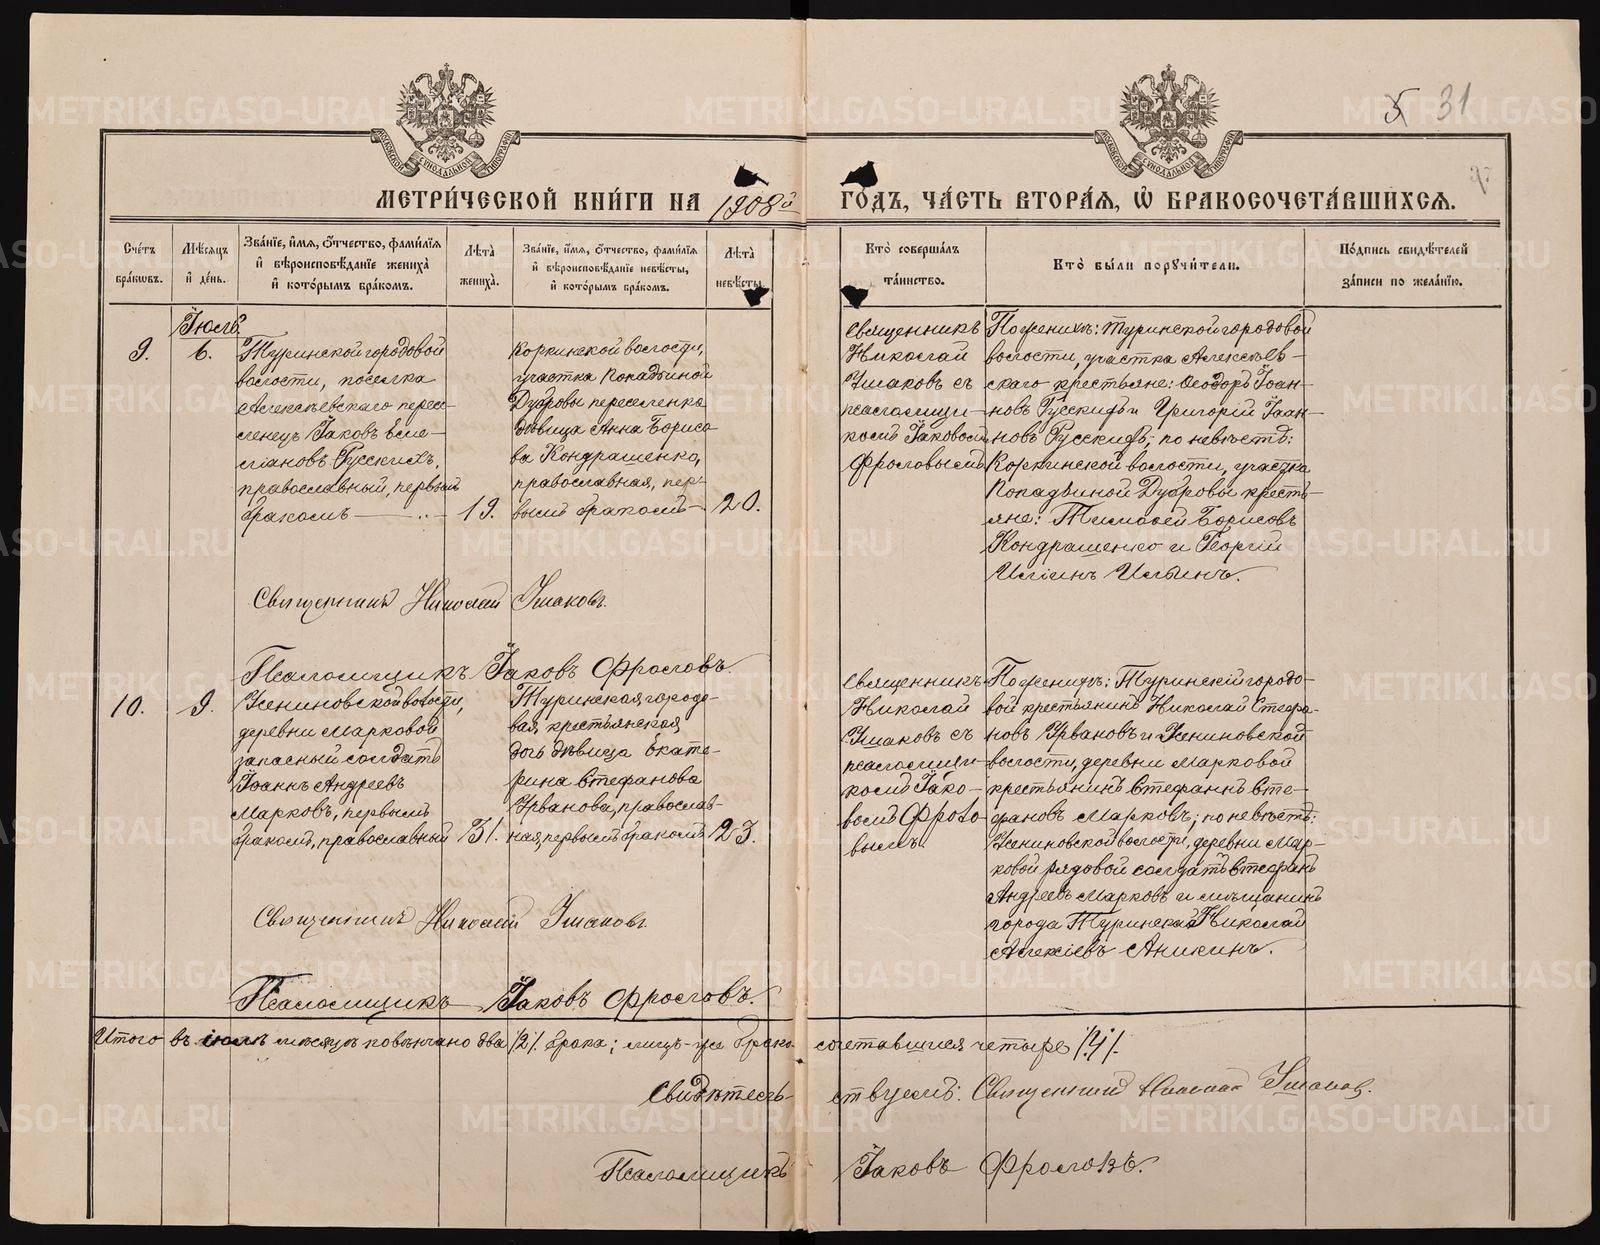 5 31
МЕТРИ́ЧЕСКОЙ КНИ́ГИ НА 1908й ГО́ДЪ, ЧА́СТЬ ВТОРА́Я, Ѡ БРАКОСОЧЕТА́ВШИХСЯ.
Сче́тъ бра́кωвъ.
Мѣ́сяцъ и҆ де́нь.
Зва́нїе, и҆́мя, ѻ҆́тчество, фами́лїя и҆ вѣроисповѣ́данїе жениха̀ и҆ кото́рымъ бра́комъ.
Лѣ́та жениха̀.
Зва́нїе, и҆́мя, ѻ҆́тчество, фами́лїя и҆ вѣроисповѣ́данїе невѣ́сты, и҆ кото́рымъ бра́комъ.
Лѣ́та невѣ́сты.
Кто̀ соверша́лъ та́инство.
Кто̀ бы́ли порꙋчи́тели.
По́дпись свидѣ́телей за́писи по жела́нїю.
Іюль.
9.
6.
Туринской городовой
волости, поселка
Алексѣевскаго пересе-
ленецъ Іаковъ Еме-
ліановъ Русскихъ,
православный, первымъ
бракомъ
19.
Коркинской волости,
участка Копадьиной
Дубровы переселенка
дѣвица Анна Борисо
ва Кондрашенко,
православная, пер-
вымъ бракомъ
20.
Священникъ
Николай
Ушаковъ съ
псаломщи-
комъ Іаковомъ
Фроловымъ
По женихѣ: Туринской городовой
волости, участка Алексѣев-
скаго крестьяне: Ѳеодоръ Іоан-
новъ Русскихъ и Григорій Іоан-
новъ Русскихъ; по невѣстѣ:
Коркинской волости, участка
Копадьиной Дубровы кресть-
яне: Тимоѳей Борисовъ
Кондрашенко и Георгій
Иліинъ Ильинъ.
Священникъ Николай Ушаковъ.
Псаломщикъ Іаковъ Фроловъ.
10.
9.
Усениновской волости,
деревни Марковой
запасный солдатъ
Іоаннъ Андреевъ
Марковъ, первымъ
бракомъ, православный
31.
Туринская городо-
вая крестьянская
дочь дѣвица Екате-
рина Стефанова
Урванова, православ-
ная, первымъ бракомъ
23.
Священникъ
Николай
Ушаковъ съ
псаломщи-
комъ Іако-
вомъ Фроло-
вымъ.
По женихѣ: Туринскій городо-
вой крестьянинъ Николай Стефа-
новъ Урвановъ и Усениновской
волости, деревни Марковой
крестьянинъ Стефанъ Сте-
фановъ Марковъ; по невѣстѣ:
Усениновской волости, деревни Мар-
ковой рядовой солдатъ Стефанъ
Андреевъ Марковъ и мѣщанинъ
города Туринска Николай
Алексіевъ Аникинъ.
Священникъ Николай Ушаковъ.
Псаломщикъ Іаковъ Фроловъ.
Итого въ іюлѣ мѣсяцѣ повѣнчано два /2/ брака; лицъ-же брако сочетавшихся четыре /4/.
Свидѣтель- ствуемъ: Священникъ Николай Ушаковъ.
Псаломщикъ Іаковъ Фроловъ.
METRIKI.GASO-URAL.RU